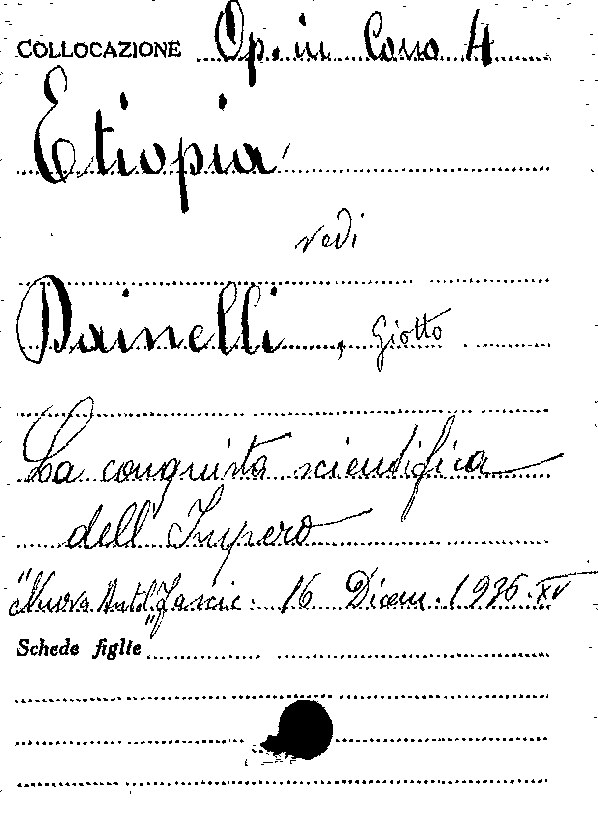 COLLOCAZIONE Op. in Corso 4
Etiopia
vedi
Dainelli, Giotto
La conquista scientifica
dell'Impero
"Nuova Antol." Fascic. 16 Dicem. 1936.XV
Schede figlie